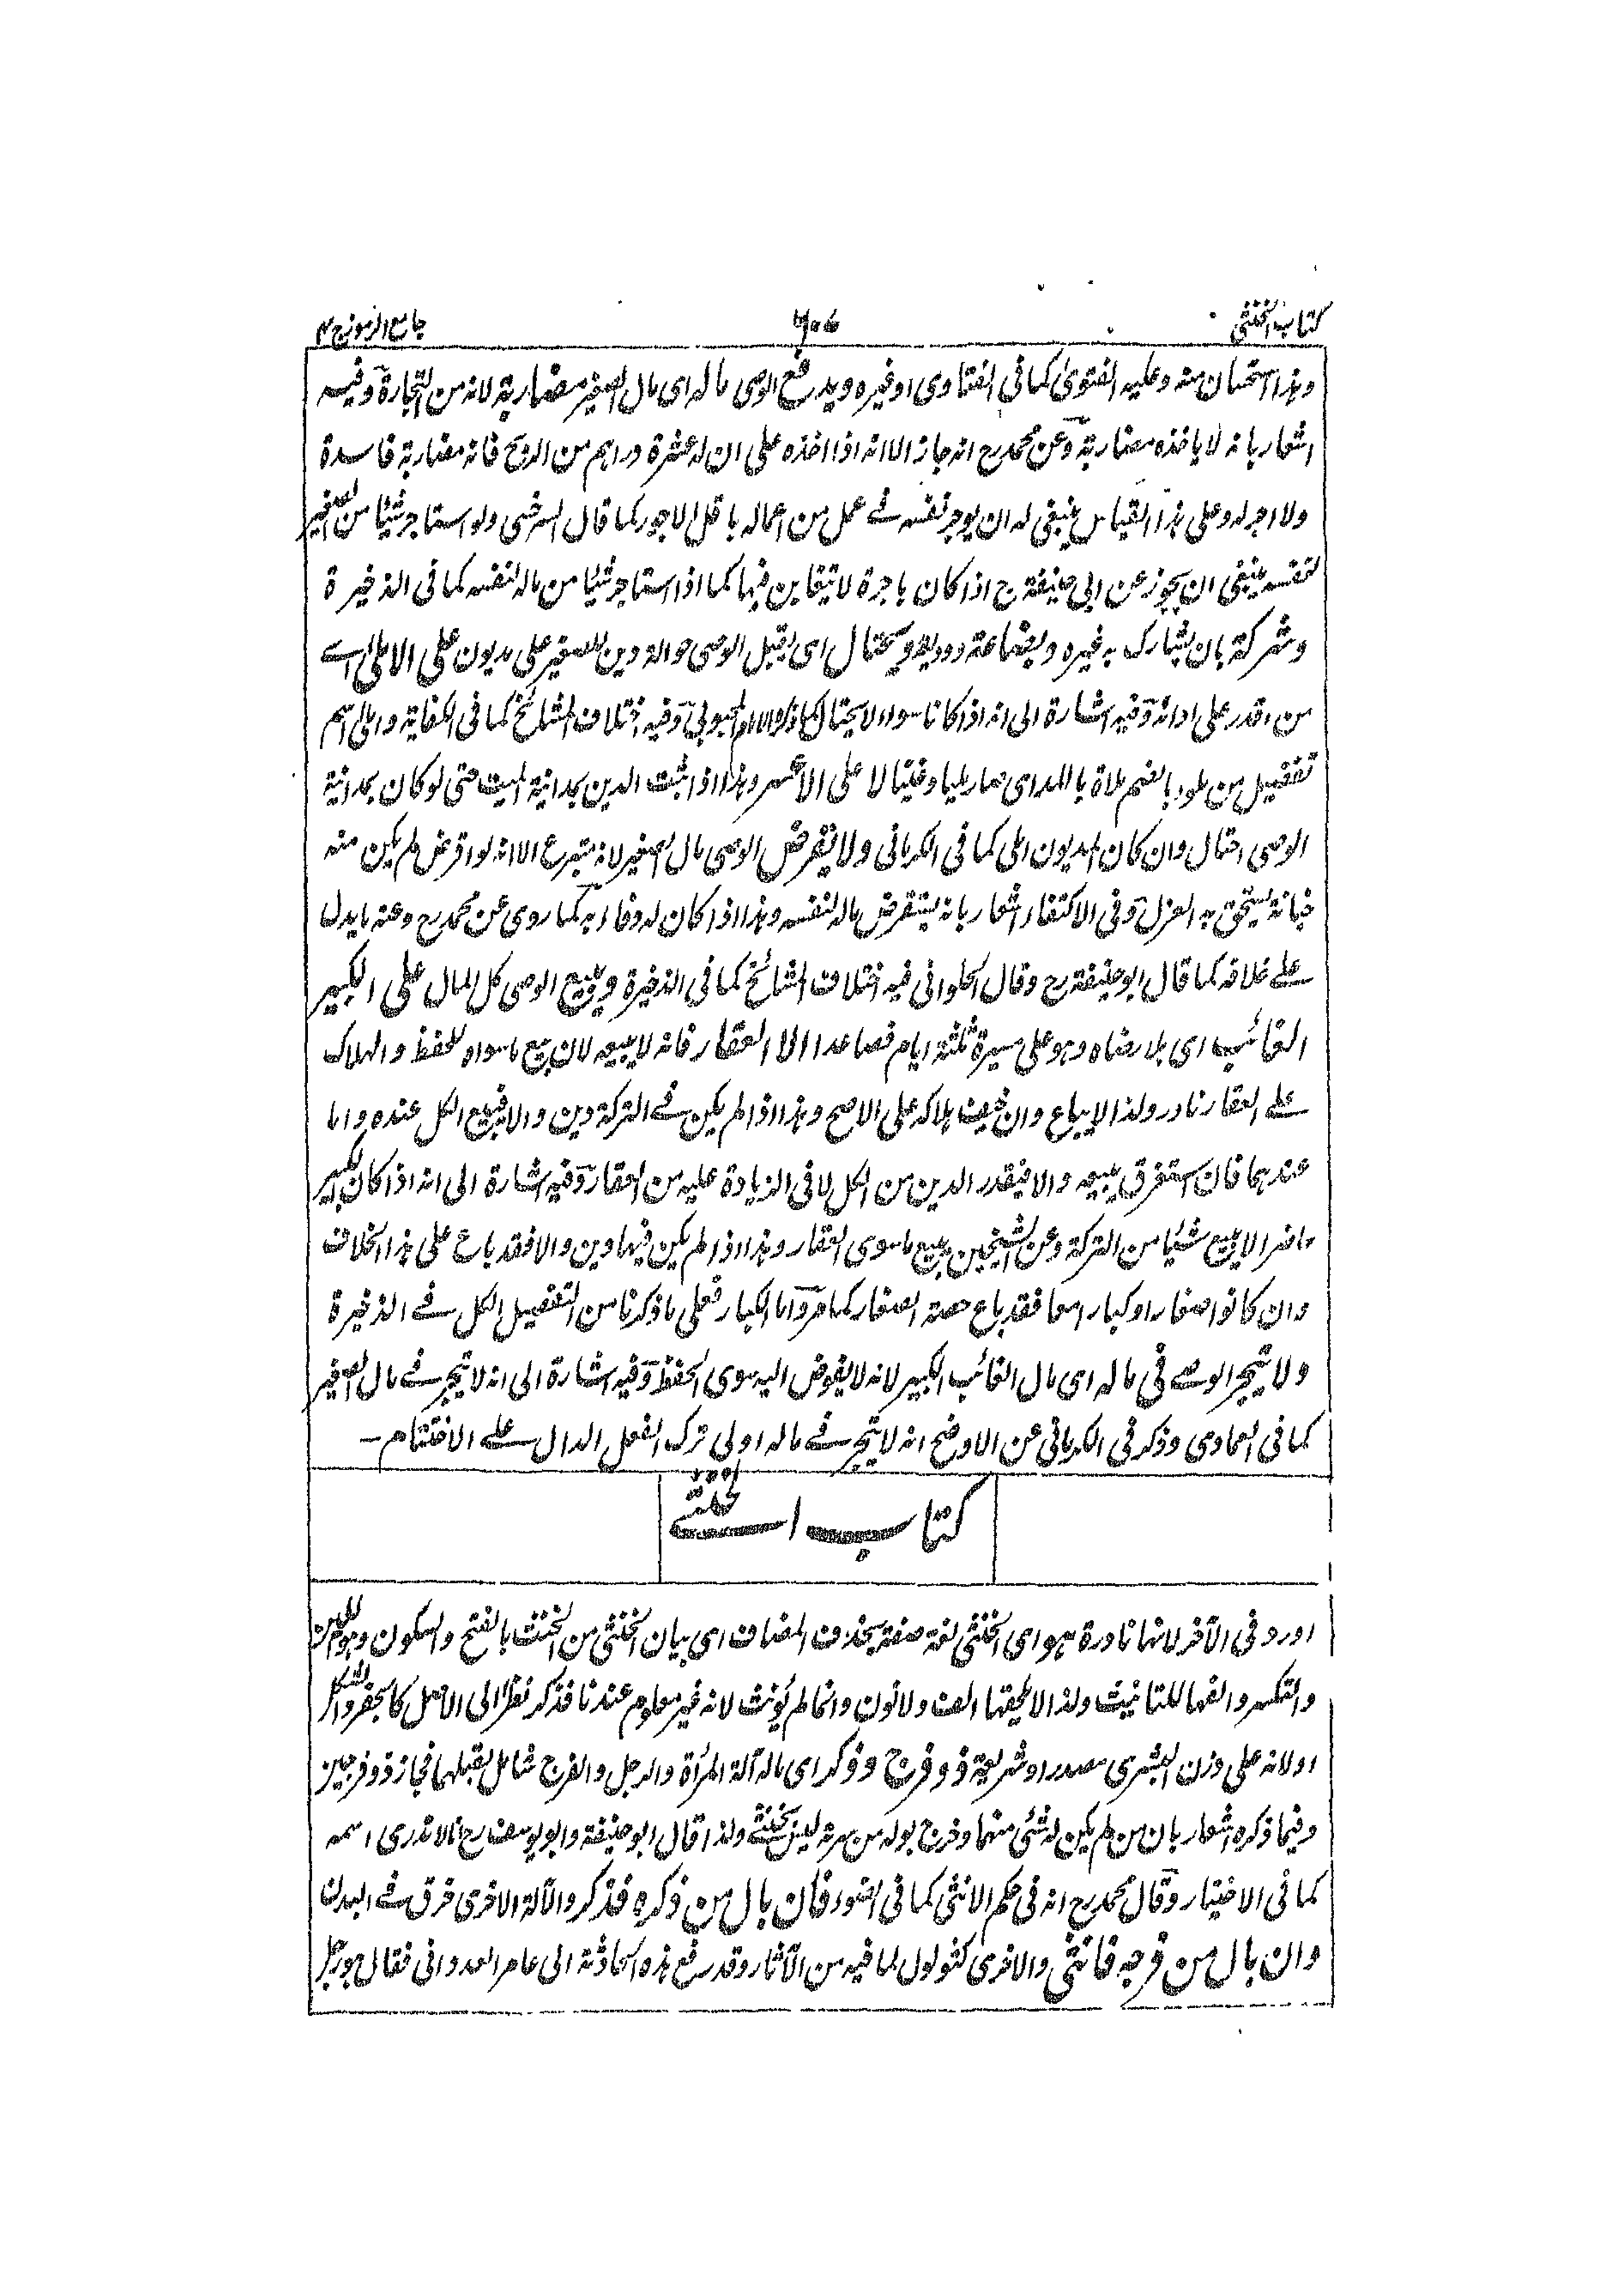 كتاب الخنثى
٧٠٤
جامع الرموز ج ٤
وهذا استحسان منه وعليه الفتوى كما فى الفتاوى او غيره ويدفع الوصى ماله اى مال الصغير مضاربة لانه من التجارة وفيه
اشعار بانه لا ياخذه مضاربة وعن محمد رح انه جاز الا انه اذا اخذه على ان له عشرة دراهم من الربح فانه مضاربة فاسدة
ولا اجر له وعلى هذا القياس ينبغى له ان يوجر نفسه فى عمل من اعماله باقل الاجور كما قال السرخسى ولو استاجر شيئا من الصغير
لنفسه ينبغى ان يجوز عن ابى حنيفة رح اذا كان باجرة لا يتغابن فيها كما اذا استاجر شيئا من ماله لنفسه كما فى الذخيرة
وشركة بان يشارك به غيره وبضاعة ووديعة ويحتال اى يقبل الوصى حوالة دين للصغير على مديون على الاملى اى
من اقدر على ادائه وفيه اشارة الى انه اذا كانا سواء لا يحتال كما ذكره الامام المحبوبى وفيه اختلاف المشائخ كما فى الكفاية واملى اسم
تفضيل من ملؤ بالضم ملاة بالمد اى صار مليا وغنيا لا على الاعسر وهذا اذا ثبت الدين بمداينة الميت حتى لو كان بمداينة
الوصى احتال وان كان المديون املى كما فى الكرمانى ولا يقرض الوصى مال الصغير لانه متبرع الا انه لو اقرض لم يكن منه
خيانة يستحق به العزل وفى الاكتفاء اشعار بانه يستقرض ماله لنفسه وهذا اذا كان له وفاء به كما روى عن محمد رح وعنه ما يدل
على خلافه كما قال ابو حنيفة رح وقال الحلوانى فيه اختلاف المشائخ كما فى الذخيرة ويبيع الوصى كل المال على الكبير
الغائب اى بلا رضاه وهو على مسيرة ثلثة ايام فصاعدا الا العقار فانه لا يبيعه لان بيع ما سواه للحفظ والهلاك
على العقار نادر ولذا لا يباع وان خيف هلاكه على الاصح وهذا اذا لم يكن فى التركة دين والا فيبيع الكل عنده واما
عندهما فان استغرق يبيعه والا فيقدر الدين من الكل لا فى الزيادة عليه من العقار وفيه اشارة الى انه اذا كان الكبير
حاضرا لا يبيع شيئا من التركة وعن الشيخين يبيع ما سوى العقار وهذا اذا لم يكن فيها دين والا فقد باع على هذا الخلاف
وان كانوا صغارا او كبارا معا فقد باع حصة الصغار كما مر واما الكبار فعلى ما ذكرنا من التفصيل الكل فى الذخيرة
ولا يتجر الوصى فى ماله اى مال الغائب الكبير لانه لا يفوض اليه سوى الحفظ وفيه اشارة الى انه لا يتجر فى مال الصغير
كما فى العمادى وذكر فى الكرمانى عن الاوضح انه لا يتجر فى ماله اولى ترك الفعل الدال على الاختتام ـ
كتاب الخنثى
اورد فى الآخر لانها نادرة هو اى الخنثى لغة صفة بحذف المضاف اى بيان الخنثى من الخنث بالفتح والسكون وهو اللين
والتكسر والفها للتانيث ولذا لا يلحقها الف ولا نون وانما لم يؤنث لانه غير معلوم عندنا فذكر نظرا الى الاصل كالجفر
اولانه على وزن البشرى مصدرا وشريعة ذو فرج وذكر اى ماله آلة المرأة والرجل والفرج شامل لقبلهما فجاز ذو فرجين
وفيما ذكره اشعار بان من لم يكن له شئ منهما وخرج بوله من سرته ليس بخنثى ولذا قال ابو حنيفة وابو يوسف رح انا لا ندرى اسمه
كما فى الاختيار وقال محمد رح انه فى حكم الانثى كما فى الضوء فان بال من ذكره فذكر والآلة الاخرى خرق فى البدن
وان بال من فرجه فانثى والاخرى كثولول لما فيه من الآثار وقد رفع هذه الحادثة الى عامر العدوانى فقال هو رجل